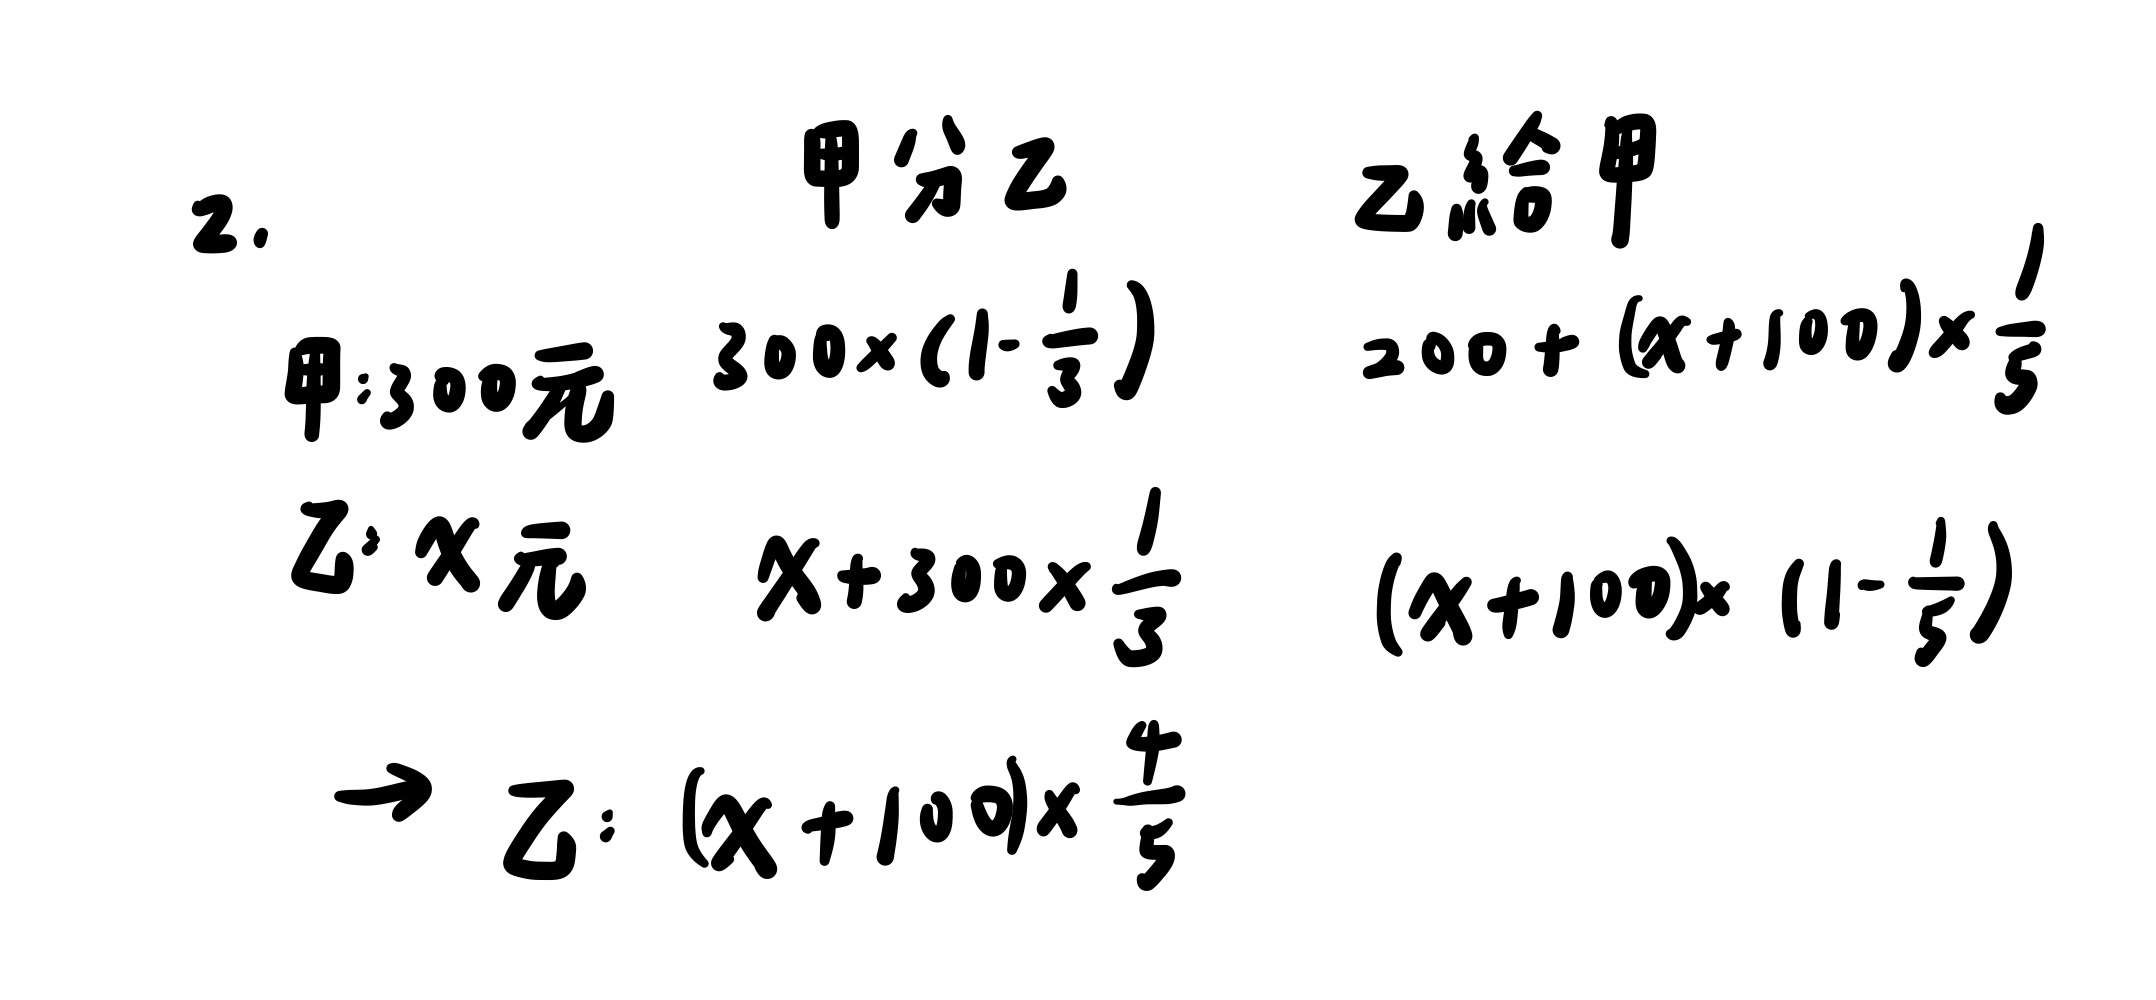 2.
甲分乙 乙給甲
甲:300元 300×(1-1/3) 200+(x+100)×1/5
乙:x元 x+300×1/3 (x+100)×(1-1/5)
→ 乙:(x+100)×4/5